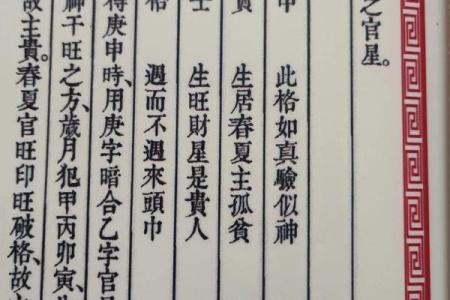 之官星。
此格如真驗似神
生居春夏主孤貧
士　生旺財星是貴人
遇而不遇來頭巾
得庚申時、用庚字暗合乙字官星
干旺之方、歲月犯甲丙卯寅、
故主貴。春夏官旺印旺破格、故